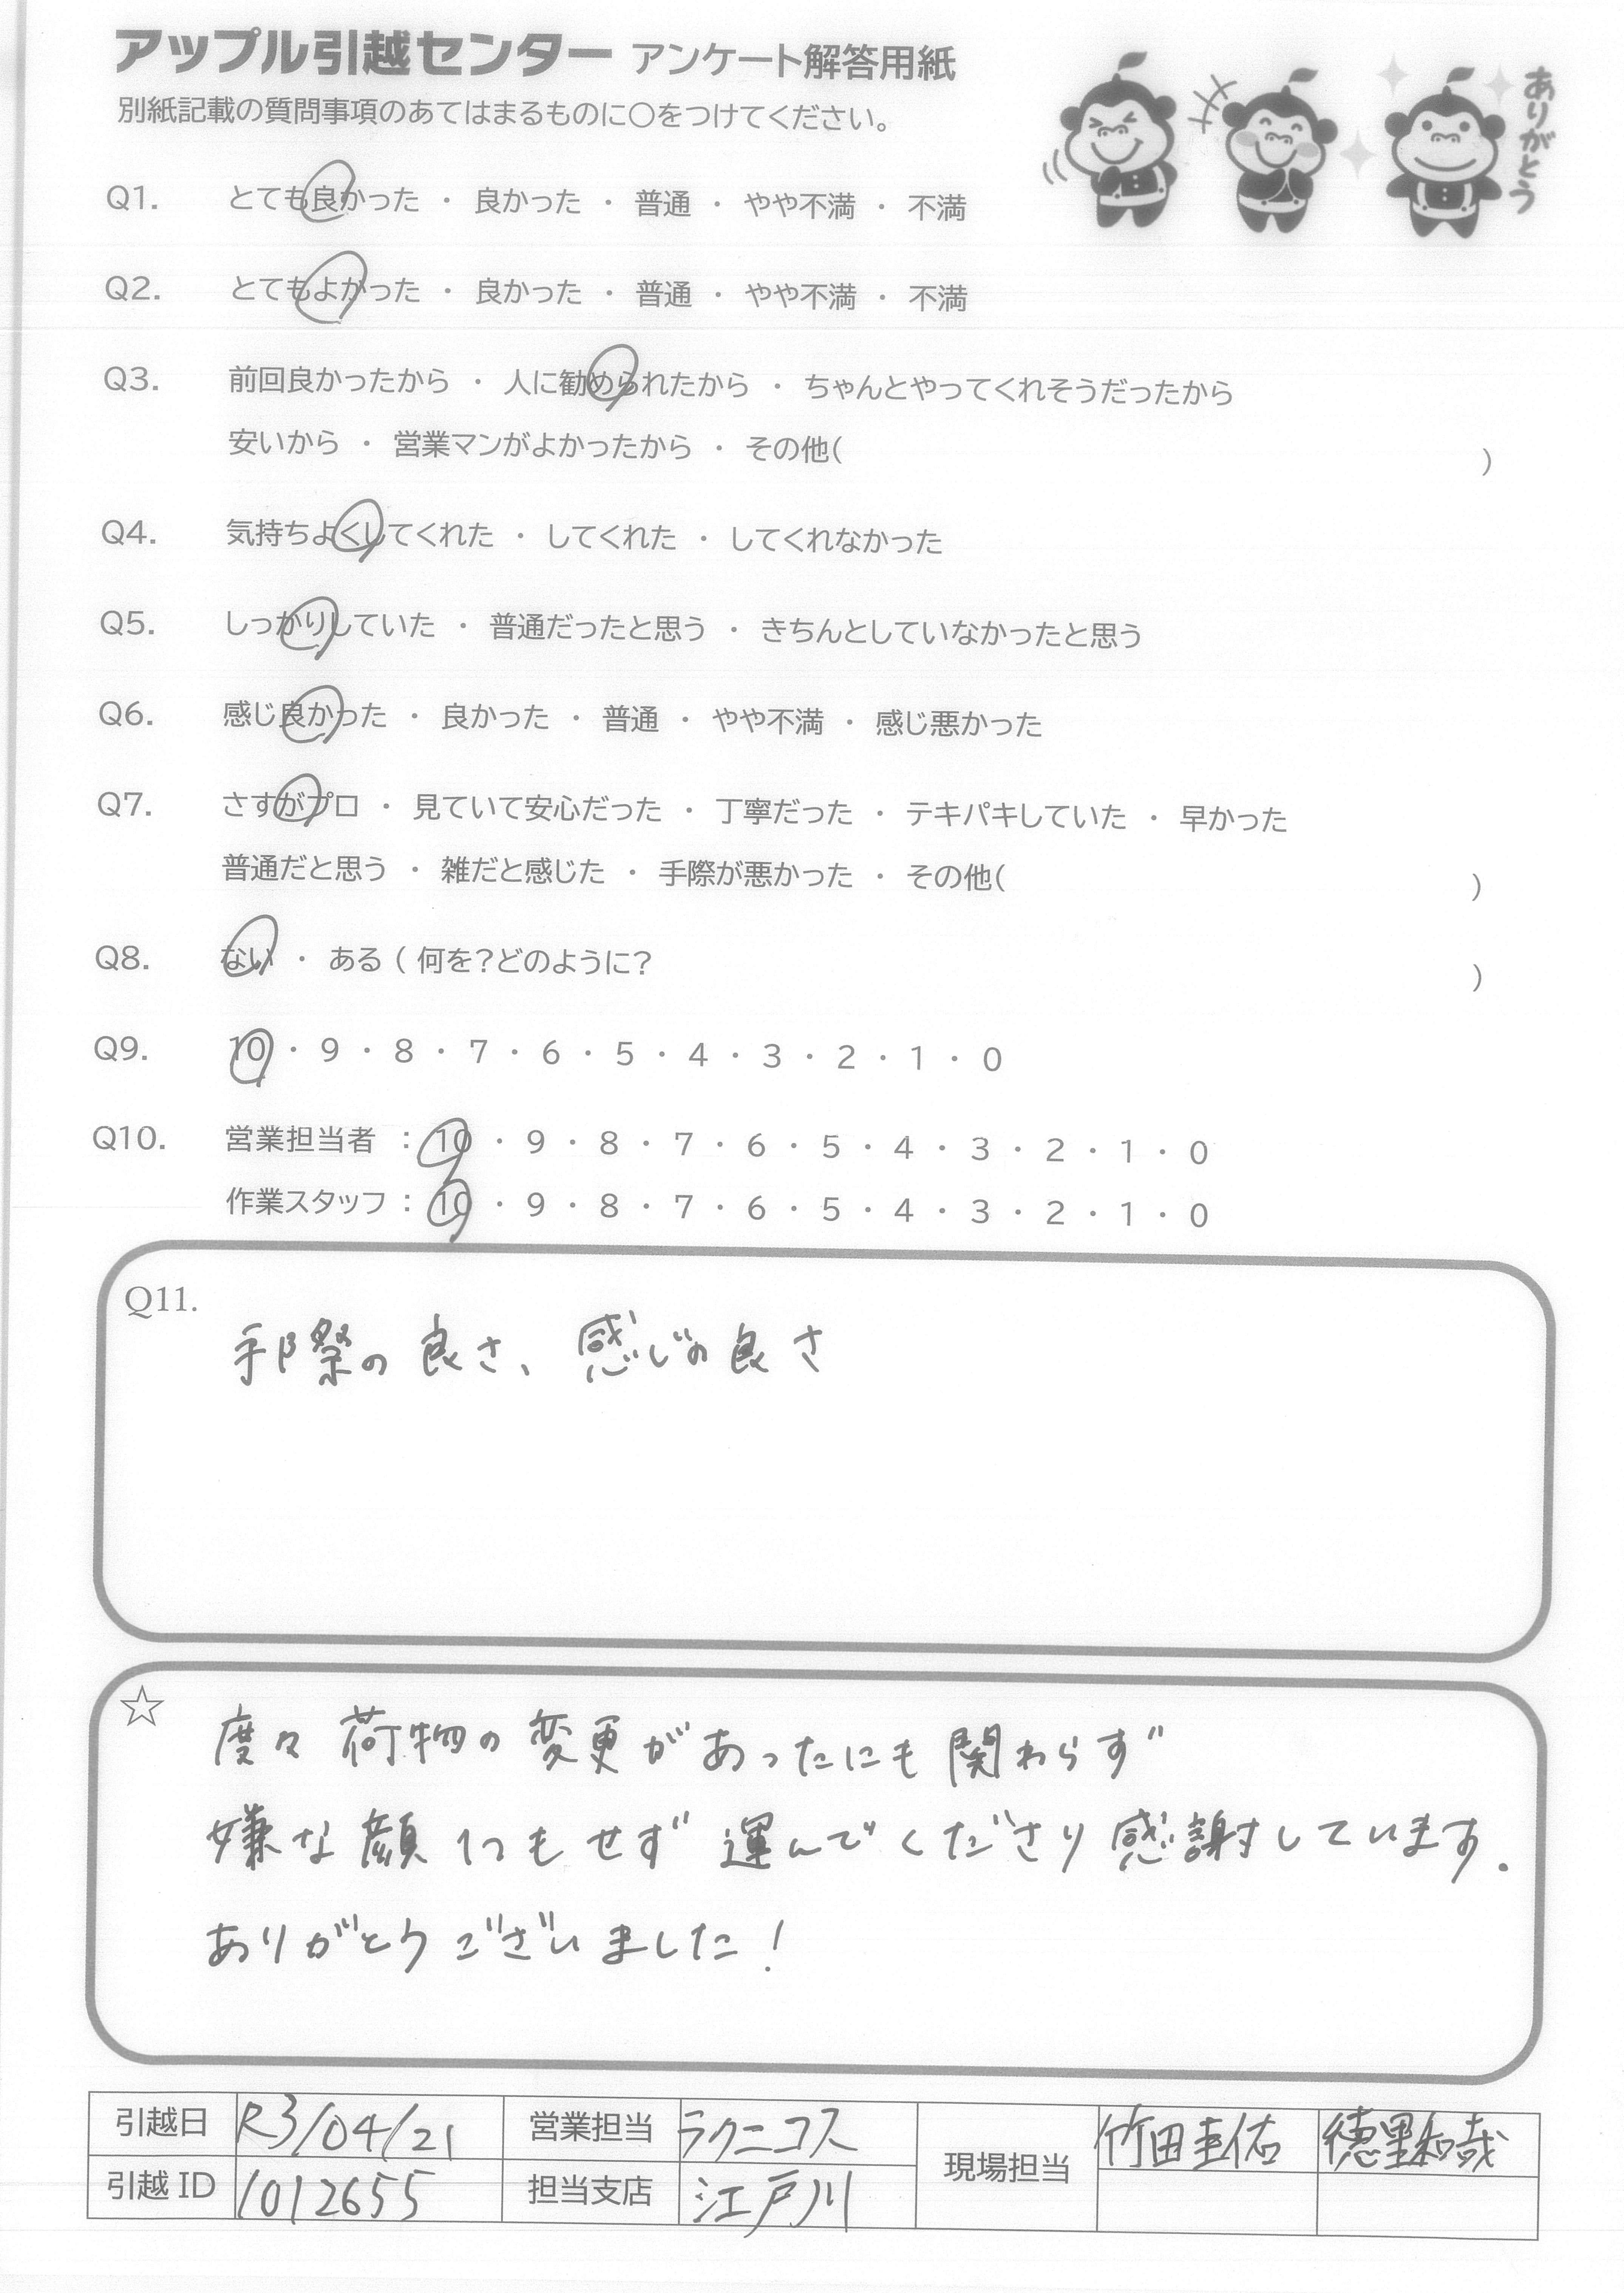 アップル引越センター アンケート解答用紙
別紙記載の質問事項のあてはまるものに〇をつけてください。
ありがとう
Q1. とても良かった ・ 良かった ・ 普通 ・ やや不満 ・ 不満
Q2. とてもよかった ・ 良かった ・ 普通 ・ やや不満 ・ 不満
Q3. 前回良かったから ・ 人に勧められたから ・ ちゃんとやってくれそうだったから
安いから ・ 営業マンがよかったから ・ その他( )
Q4. 気持ちよくしてくれた ・ してくれた ・ してくれなかった
Q5. しっかりしていた ・ 普通だったと思う ・ きちんとしていなかったと思う
Q6. 感じ良かった ・ 良かった ・ 普通 ・ やや不満 ・ 感じ悪かった
Q7. さすがプロ ・ 見ていて安心だった ・ 丁寧だった ・ テキパキしていた ・ 早かった
普通だと思う ・ 雑だと感じた ・ 手際が悪かった ・ その他( )
Q8. ない ・ ある ( 何を?どのように? )
Q9. 10 ・ 9 ・ 8 ・ 7 ・ 6 ・ 5 ・ 4 ・ 3 ・ 2 ・ 1 ・ 0
Q10. 営業担当者 : 10 ・ 9 ・ 8 ・ 7 ・ 6 ・ 5 ・ 4 ・ 3 ・ 2 ・ 1 ・ 0
作業スタッフ : 10 ・ 9 ・ 8 ・ 7 ・ 6 ・ 5 ・ 4 ・ 3 ・ 2 ・ 1 ・ 0
Q11.
手際の良さ、感じの良さ
☆
度々 荷物の変更があったにも関わらず
嫌な顔1つもせず 運んでくださり 感謝しています.
ありがとうございました!
引越日 R3/04/21 営業担当 ラクニコス 現場担当 竹田圭佑 徳里和哉
引越ID 1012655 担当支店 江戸川